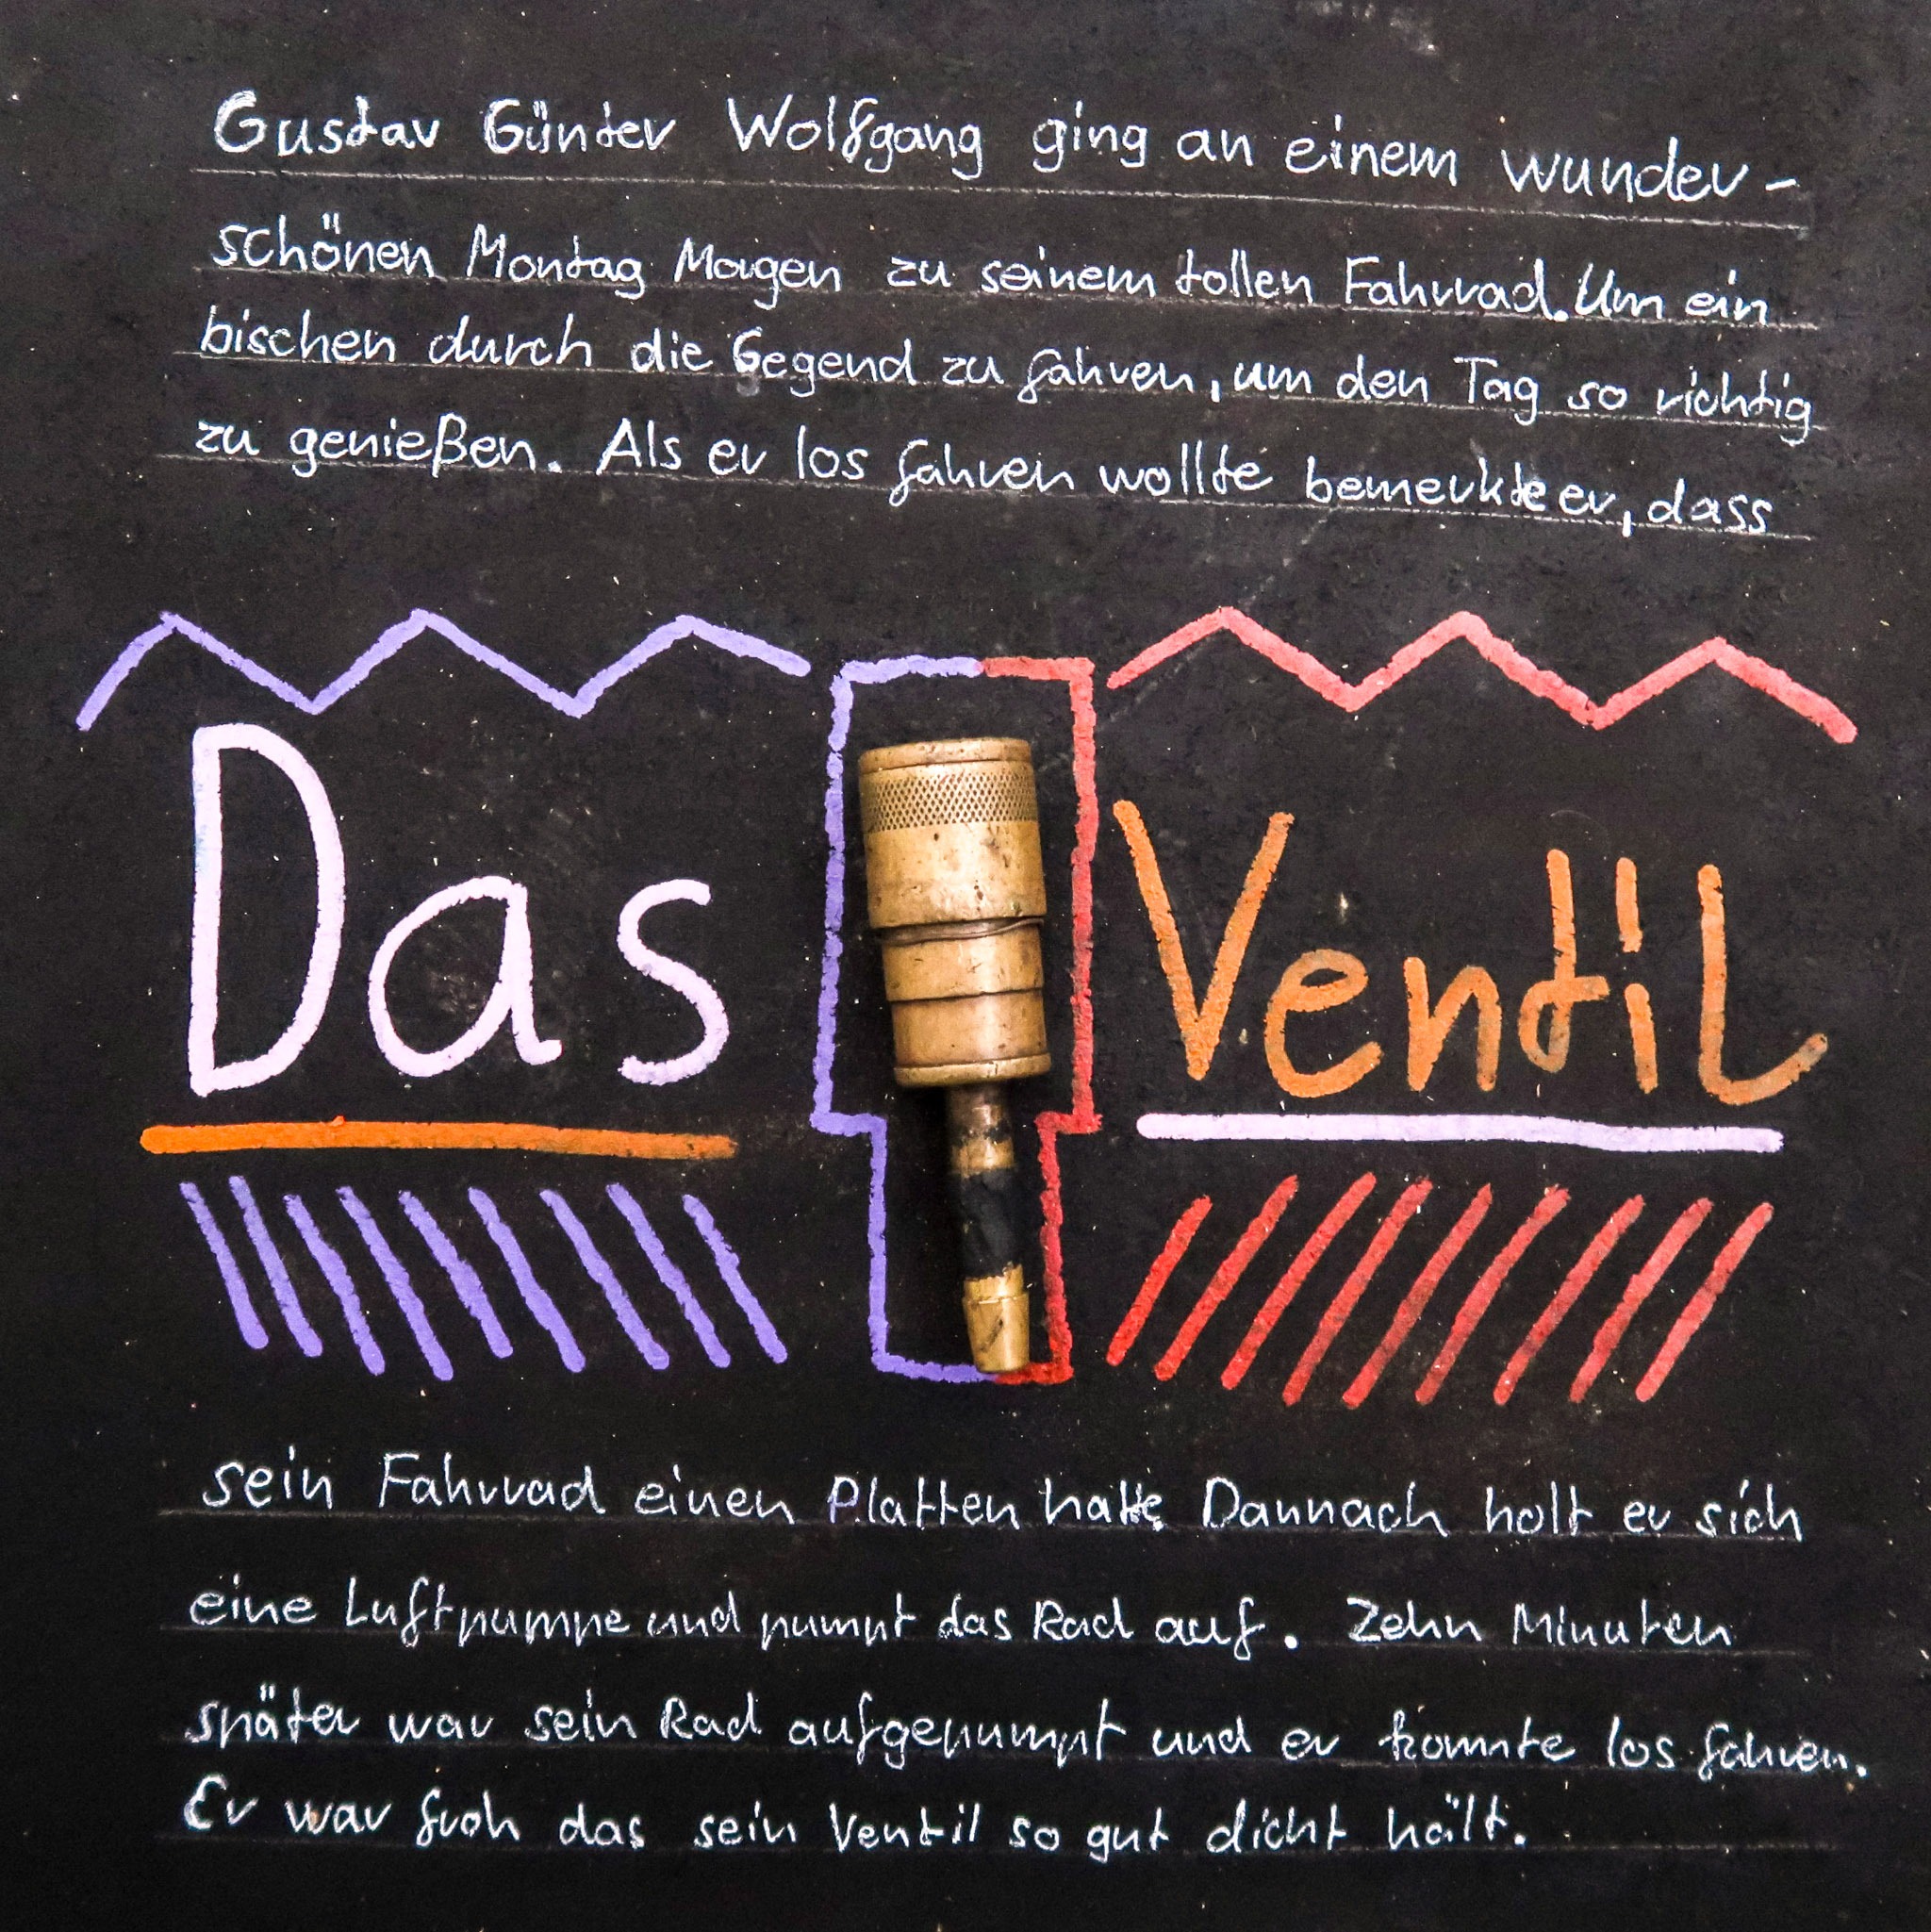 Gustav Günter Wolfgang ging an einem wunder-
schönen Montag Morgen zu seinem tollen Fahrrad. Um ein
bischen durch die Gegend zu fahren, um den Tag so richtig
zu genießen. Als er los fahren wollte bemerkte er, dass
Das Ventil
sein Fahrrad einen Platten hatte Dannach holt er sich
eine Luftpumpe und pumpt das Rad auf. Zehn Minuten
später war sein Rad aufgepumpt und er konnte los fahren.
Er war froh das sein Ventil so gut dicht hält.